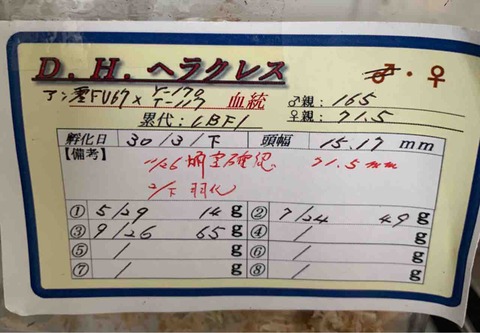 D. H. ヘラクレス ♂・♀
アン FU67×Y-170 T-117 血統 ♂親:165
累代:CBF1 ♀親:71.5
孵化日 30/3/下 頭幅 15.17 mm
【備考】 11/26 蛹室確認 71.5mm
2/下 羽化
① 5/29 14g ② 7/24 49g
③ 9/26 65g ④ / g
⑤ / g ⑥ / g
⑦ / g ⑧ / g